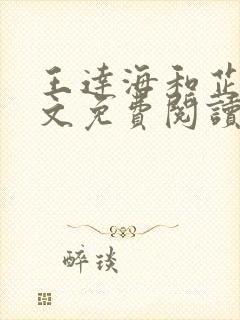 王達海和芷
文免費閱讀
醉琰